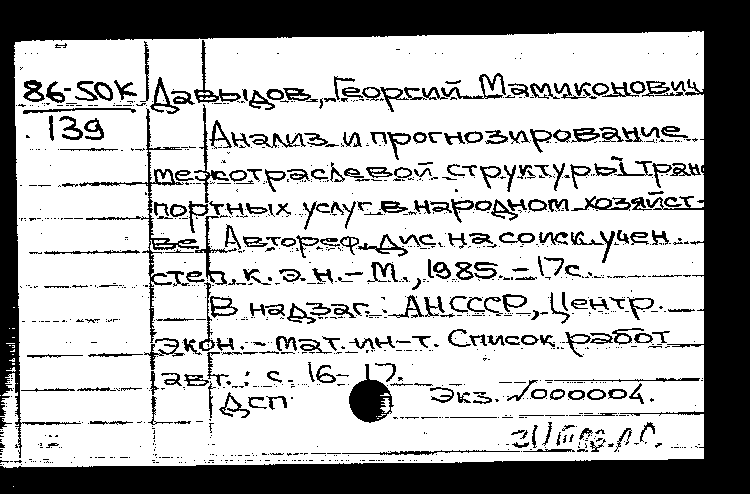 86-50К Давыдов, Георгий Мамиконович
139
Анализ и прогнозирование
межотраслевой структуры транс
портных услуг в народном хозяйст-
ве. Автореф. дис. на соиск. учен.
степ. к. э. н. - М., 1985. - 17с.
В надзаг.: АНСССР, Центр.
экон. - мат. ин-т. Список работ
авт.: с. 16-17.
ДСП Экз. №000004.